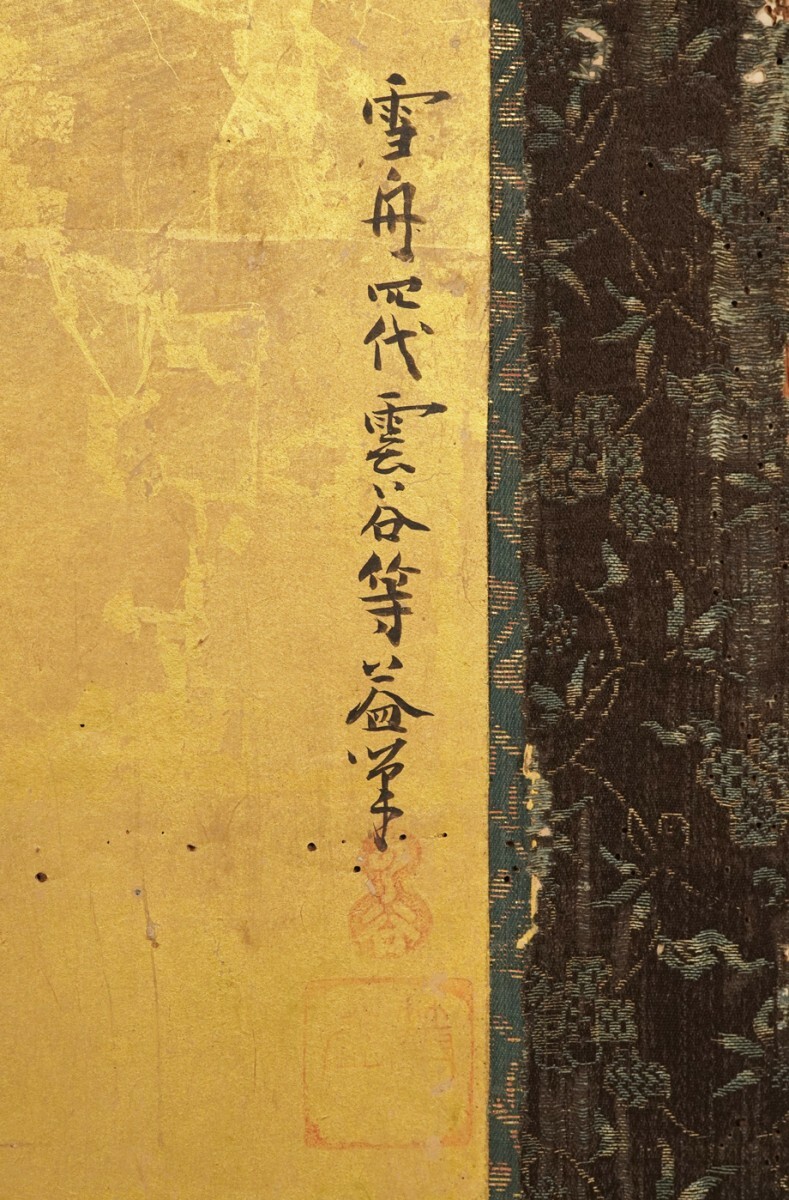 雪舟四代雲谷等益筆